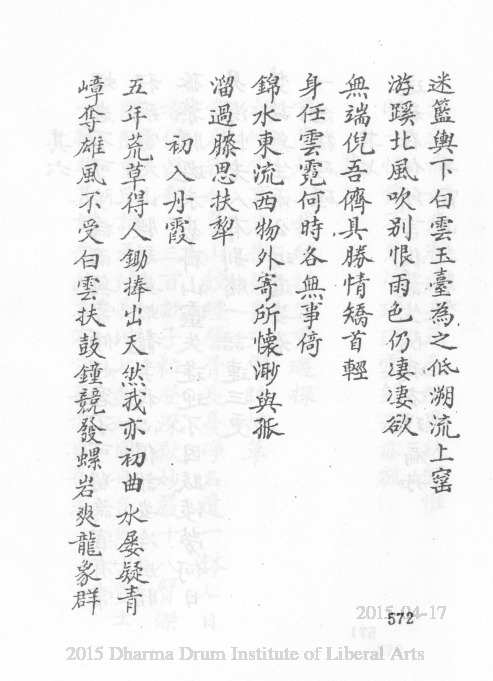 迷籃輿下白雲玉臺為之低溯流上窑
游蹊北風吹別恨雨色仍淒淒欲
無端倪吾儕具勝情矯首輕
身任雲霓何時各無事倚
錦水東流西物外寄所懷渺與孤
溜過膝思扶犂
初入丹霞
五年荒草得人鋤捧出天然我亦初曲水屡凝青
嶂奪雄風不受白雲扶鼓鐘競發螺岩爽龍象群
2015-04-17
572
2015 Dharma Drum Institute of Liberal Arts